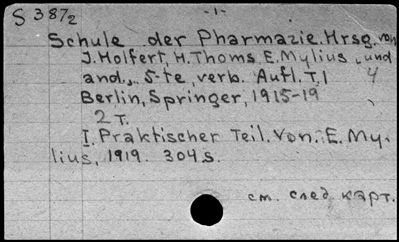 S 387/2
-1-
Schule der Pharmazie. Hrsg. von
J. Holfert, H. Thoms, E. Mylius, und
and., 5-te, verb. Aufl. T. 1 4
Berlin, Springer, 1915-19
2 т.
I. Praktischer Teil. Von: E. My-
lius, 1919. 304 s.
см. след. карт.